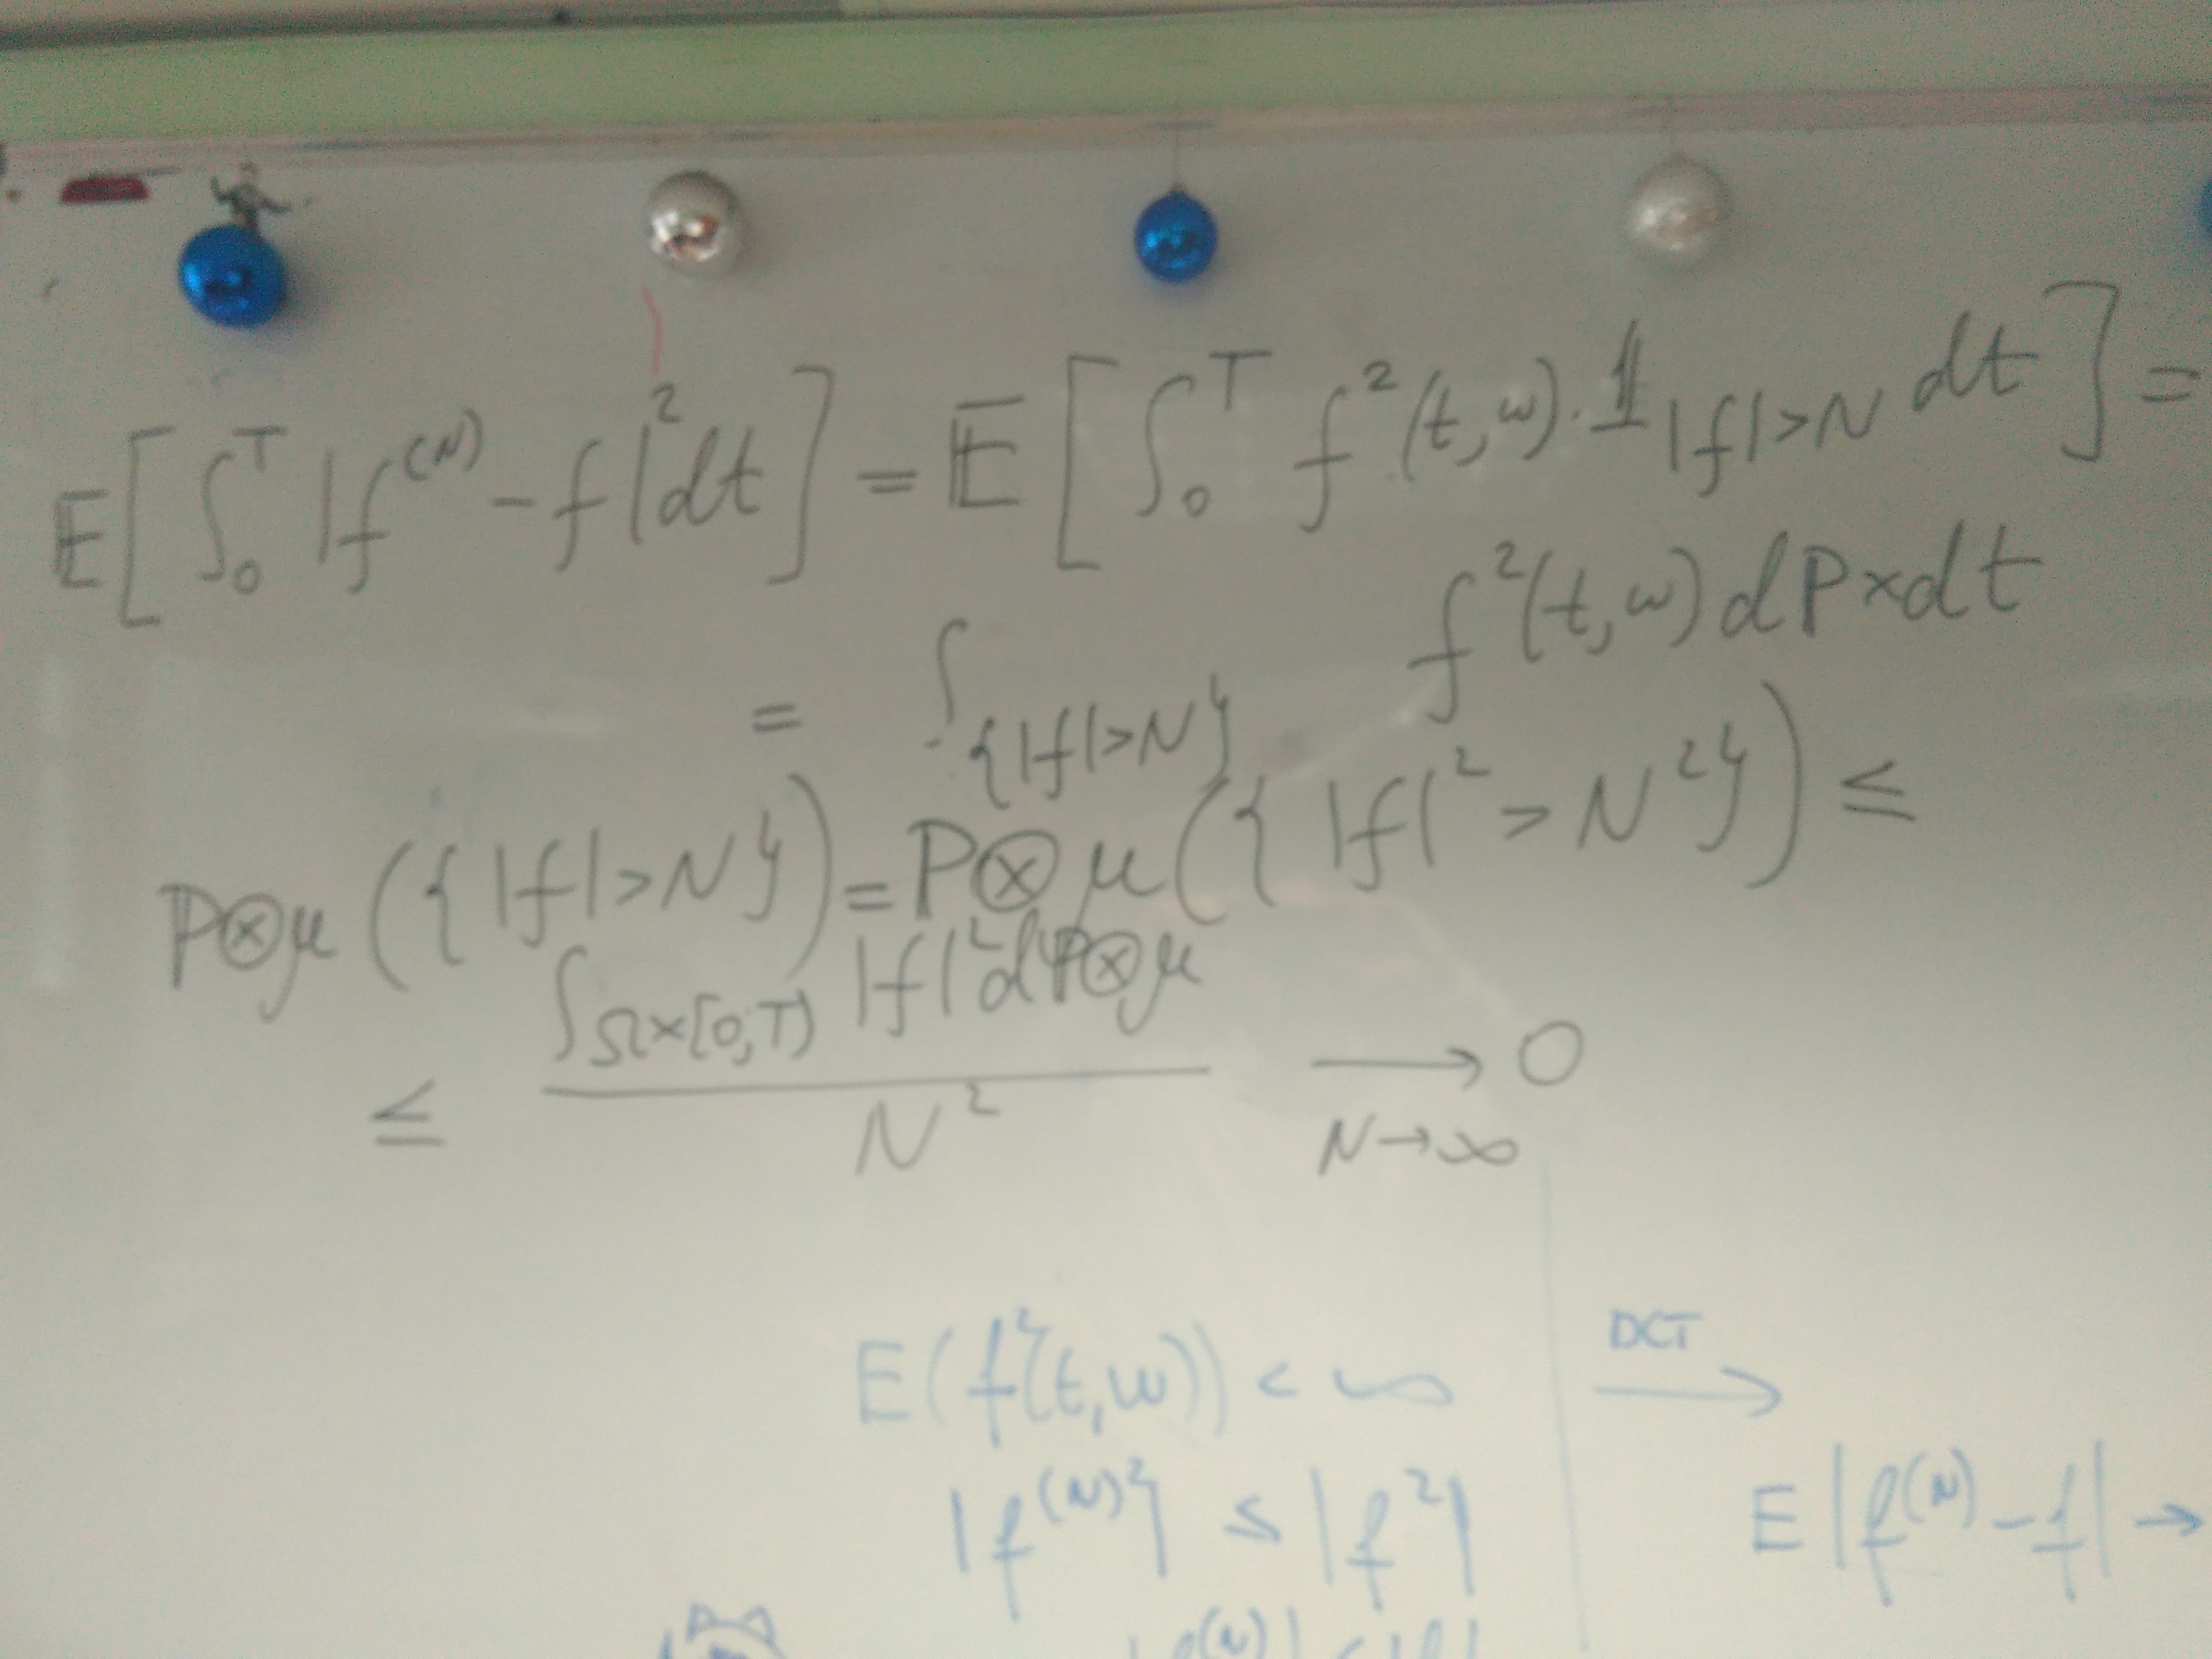 E[∫₀ᵀ |f⁽ᴺ⁾ - f|² dt] = E[∫₀ᵀ f²(t,ω)·𝟙_{|f|>N} dt] =
= ∫_{{|f|>N}} f²(t,ω) dP×dt
P⊗μ({|f|>N}) = P⊗μ({|f|²>N²}) ≤
≤ ∫_{Ω×[0,T)} |f|² dP⊗μ / N² → 0
N→∞
E(f²(t,ω)) < ∞ DCT →
|f⁽ᴺ⁾²| ≤ |f²| E|f⁽ᴺ⁾ - f| →